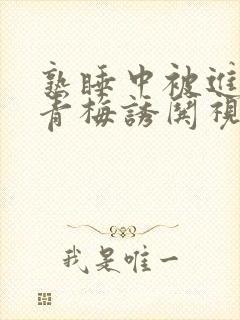 熟睡中被進
青梅誘関視
我是唯一